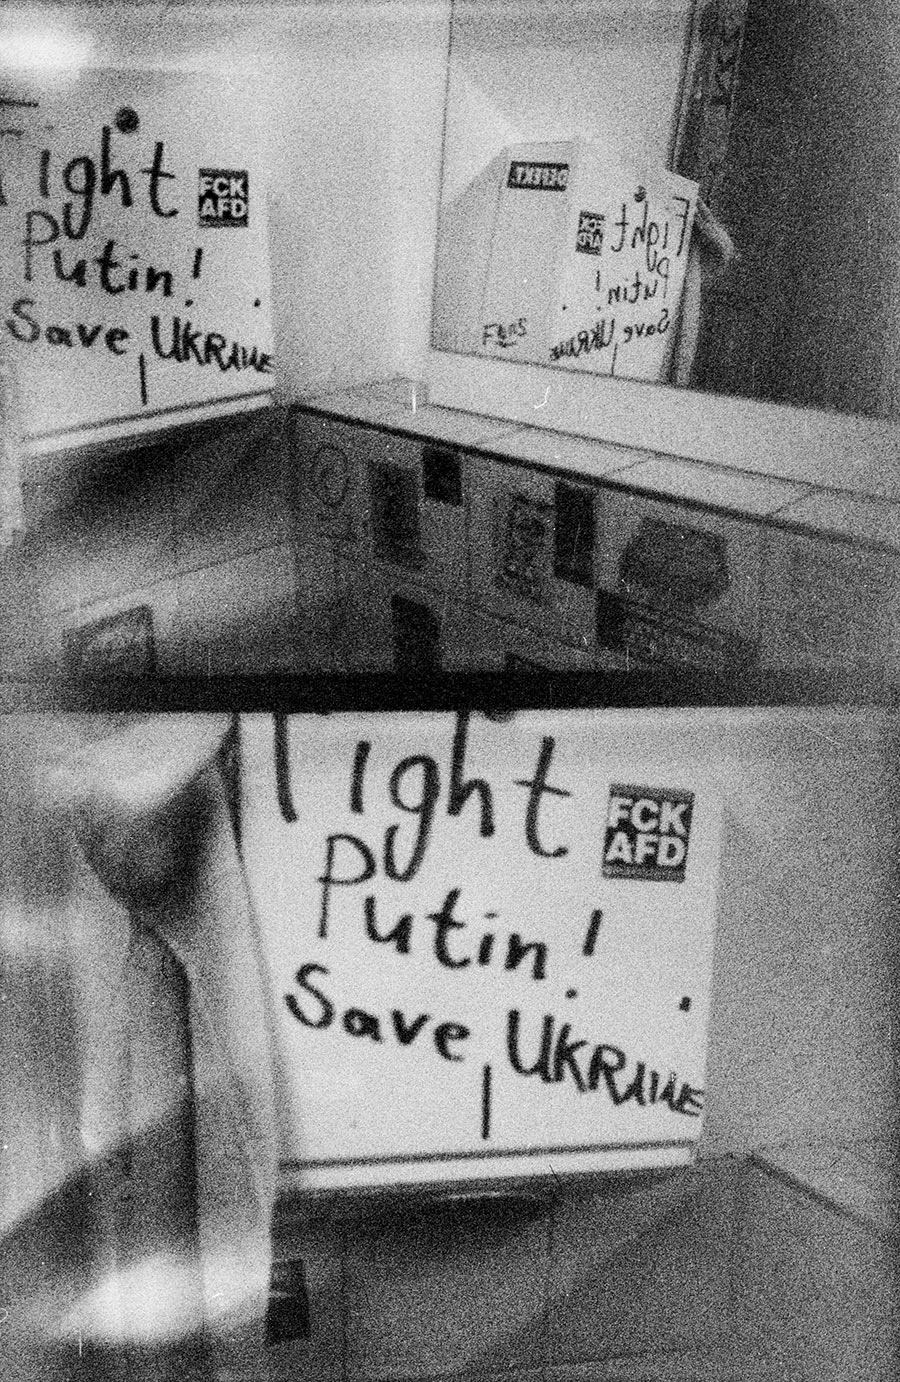 Fight
Putin!
Save UKRAINE
FCK
AFD
DEFEKT.
Fans
Fight
Putin!
Save UKRAINE
FCK
AFD
Fight
Putin!
Save UKRAINE
FCK
AFD